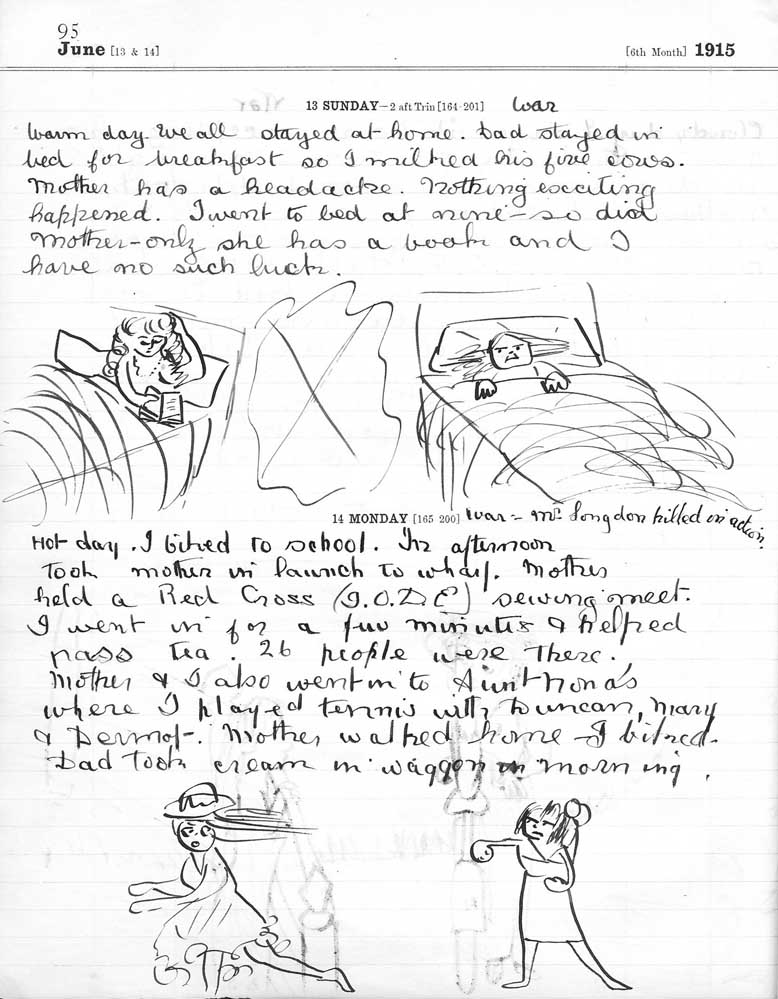 95
June [13 & 14] [6th Month] 1915
13 SUNDAY—2 aft Trin [164-201] War
Warm day. We all stayed at home. Dad stayed in
bed for breakfast so I milked his five cows.
Mother has a headache. Nothing exciting
happened. I went to bed at nine - so did
Mother - only she has a book and I
have no such luck.
14 MONDAY [165 200] War - Mr. Longdon killed in action.
Hot day. I biked to school. In afternoon
took mother in launch to wharf. Mother
held a Red Cross (I.O.D.E) sewing meet.
I went in for a few minutes & helped
pass tea. 26 people were there.
Mother & I also went in to Aunt Nona's
where I played tennis with Duncan, Mary
& Dermot. Mother walked home - I biked.
Dad took cream in waggon in morning.